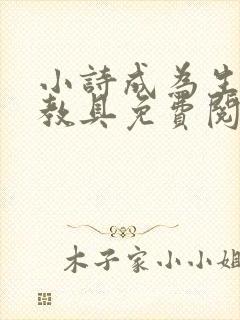 小詩成為生
教具免費閱
木子家小小姐